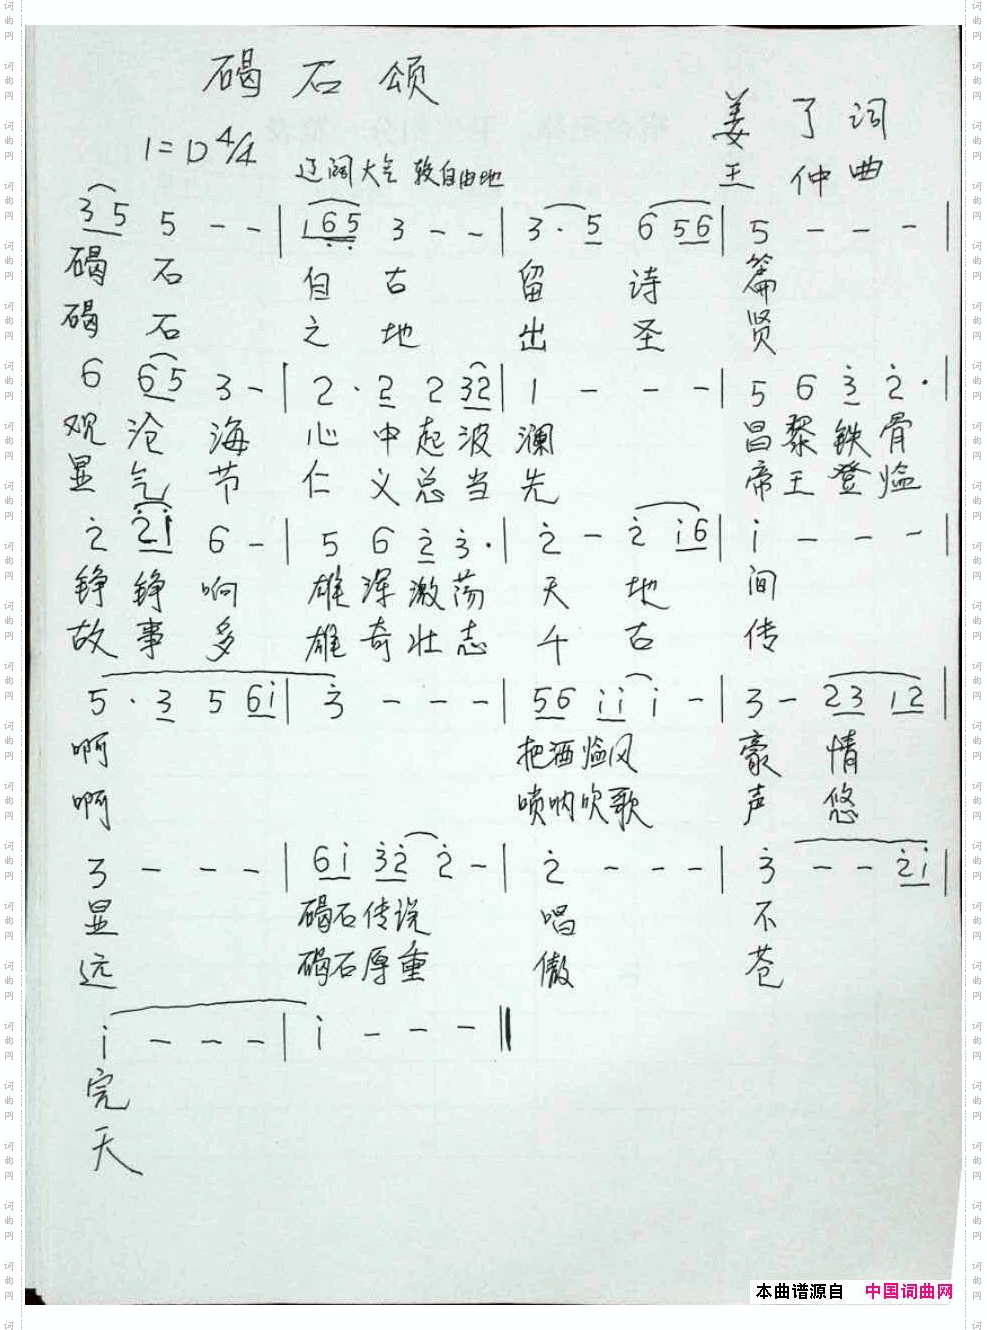 碣石颂
姜了词
1=D 4/4
辽阔大气 较自由地
王仲曲
3 5 5 - - | 1 6 5 3 - - | 3 · 5 6 5 6 | 5 - - - |
碣 石 自 古 留 诗 篇
碣 石 之 地 出 圣 贤
6 6 5 3 - | 2 · 2 2 3 2 | 1 - - - | 5 6 3 2 · |
观 沧 海 心 中 起 波 澜 昌 黎 铁 骨
显 气 节 仁 义 总 当 先 帝 王 登 临
2 2 i 6 - | 5 6 2 3 · | 2 - 2 i 6 | i - - - |
铮 铮 响 雄 浑 激 荡 天 地 间
故 事 多 雄 奇 壮 志 千 古 传
5 · 3 5 6 i | 3 - - - | 5 6 i i i - | 3 - 2 3 1 2 |
啊 把酒临风 豪 情
啊 唢呐吹歌 声 悠
3 - - - | 6 i 3 2 2 - | 2 - - - | 3 - - 2 i |
显 碣石传说 唱 不
远 碣石厚重 傲 苍
i - - - | i - - - ‖
完
天
本曲谱源自 中国词曲网